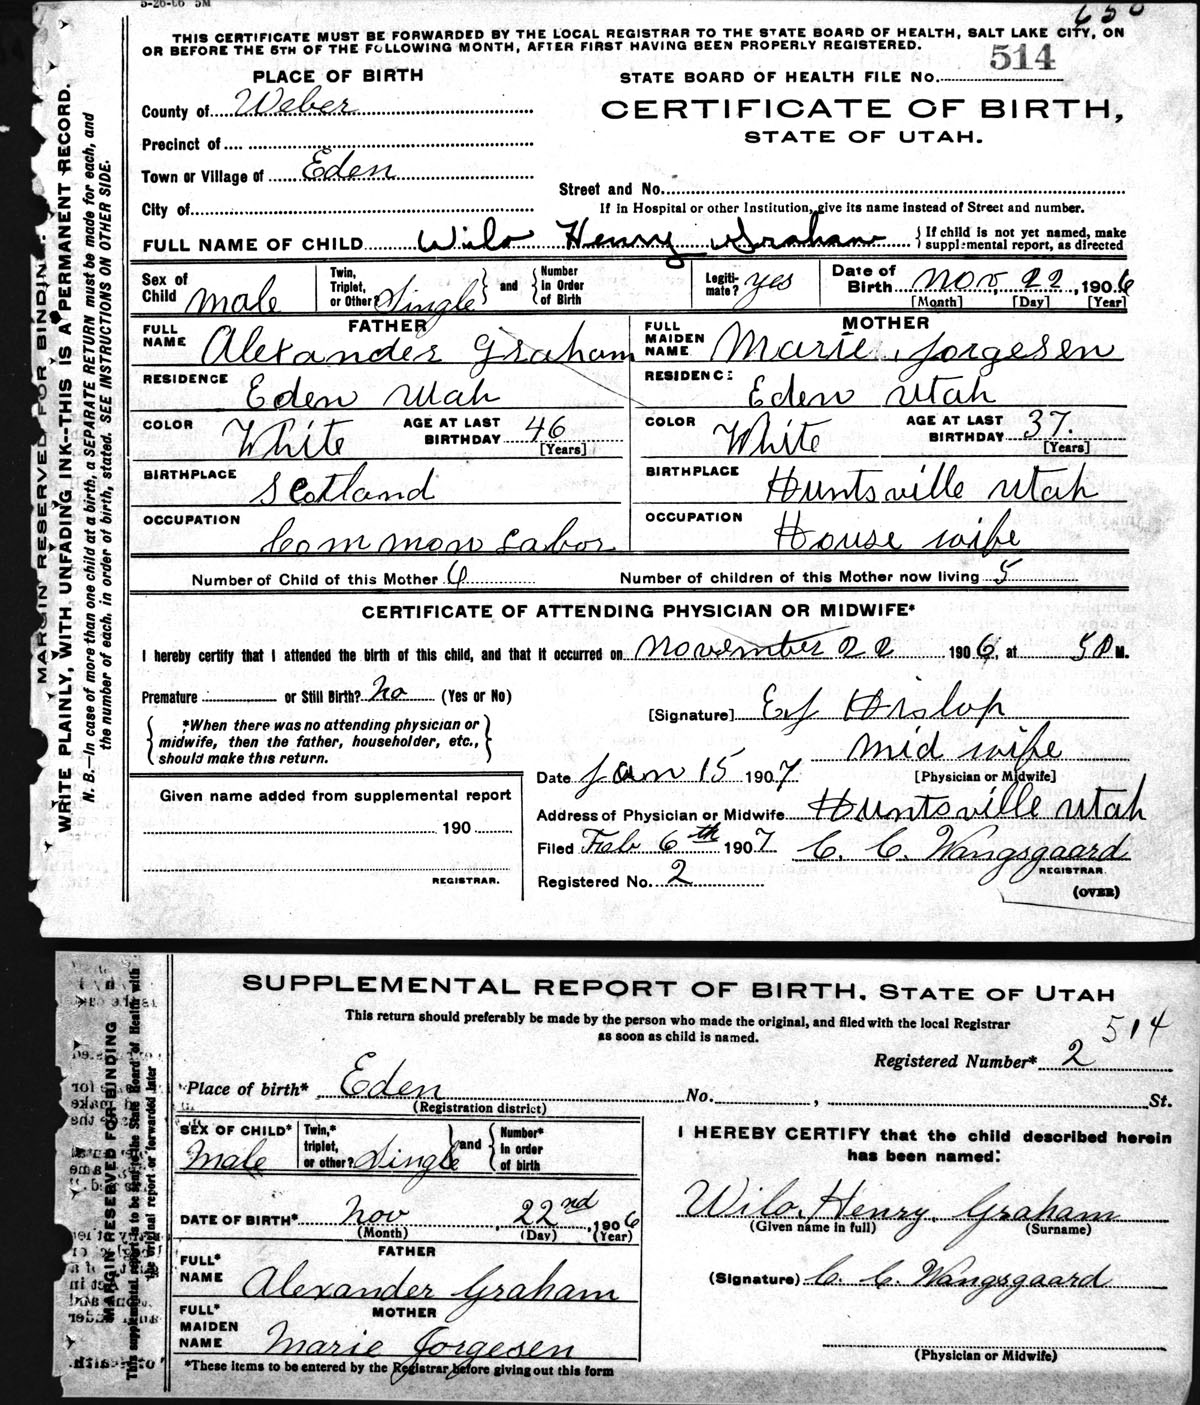 5-26-06 5M
650
THIS CERTIFICATE MUST BE FORWARDED BY THE LOCAL REGISTRAR TO THE STATE BOARD OF HEALTH, SALT LAKE CITY, ON
OR BEFORE THE 5TH OF THE FOLLOWING MONTH, AFTER FIRST HAVING BEEN PROPERLY REGISTERED.
MARGIN RESERVED FOR BINDING.
WRITE PLAINLY, WITH UNFADING INK--THIS IS A PERMANENT RECORD.
N. B.—In case of more than one child at a birth, a SEPARATE RETURN must be made for each, and
the number of each, in order of birth, stated. SEE INSTRUCTIONS ON OTHER SIDE.
PLACE OF BIRTH
STATE BOARD OF HEALTH FILE NO. 514
County of Weber
CERTIFICATE OF BIRTH,
STATE OF UTAH.
Precinct of
Town or Village of Eden
Street and No.
City of
If in Hospital or other Institution, give its name instead of Street and number.
FULL NAME OF CHILD Wilo Henry Graham { If child is not yet named, make
supplemental report, as directed
Sex of Child Male
Twin, Triplet, or Other? Single } and { Number in Order of Birth
Legitimate? yes
Date of Birth Nov, 22, 1906
[Month] [Day] [Year]
FATHER
FULL NAME Alexander Graham
RESIDENCE Eden Utah
COLOR White AGE AT LAST BIRTHDAY 46 [Years]
BIRTHPLACE Scotland
OCCUPATION Common Labor
MOTHER
FULL MAIDEN NAME Marie Jorgesen
RESIDENCE Eden Utah
COLOR White AGE AT LAST BIRTHDAY 37. [Years]
BIRTHPLACE Huntsville Utah
OCCUPATION House wife
Number of Child of this Mother 6 Number of children of this Mother now living 5
CERTIFICATE OF ATTENDING PHYSICIAN OR MIDWIFE*
I hereby certify that I attended the birth of this child, and that it occurred on November 22 1906, at 5 P M.
Premature or Still Birth? No (Yes or No)
{ *When there was no attending physician or
midwife, then the father, householder, etc.,
should make this return. }
[Signature] E J Hislop
Mid wife
[Physician or Midwife]
Date Jan 15 1907
Given name added from supplemental report
190
REGISTRAR.
Address of Physician or Midwife Huntsville Utah
Filed Feb 6th 1907 C. C. Wangsgaard
REGISTRAR.
Registered No. 2
(OVER)
SUPPLEMENTAL REPORT OF BIRTH. STATE OF UTAH
This return should preferably be made by the person who made the original, and filed with the local Registrar
as soon as child is named.
514
Registered Number* 2
MARGIN RESERVED FOR BINDING
This supplemental report to be sent to the State Board of Health with
the original report or forwarded later
Place of birth* Eden No. , St.
(Registration district)
SEX OF CHILD* Male
Twin,* triplet, or other? Single } and { Number* in order of birth
DATE OF BIRTH* Nov, 22nd, 1906
(Month) (Day) (Year)
FATHER
FULL* NAME Alexander Graham
MOTHER
FULL* MAIDEN NAME Marie Jorgesen
*These items to be entered by the Registrar before giving out this form
I HEREBY CERTIFY that the child described herein
has been named:
Wilo, Henry, Graham
(Given name in full) (Surname)
(Signature) C. C. Wangsgaard
(Physician or Midwife)